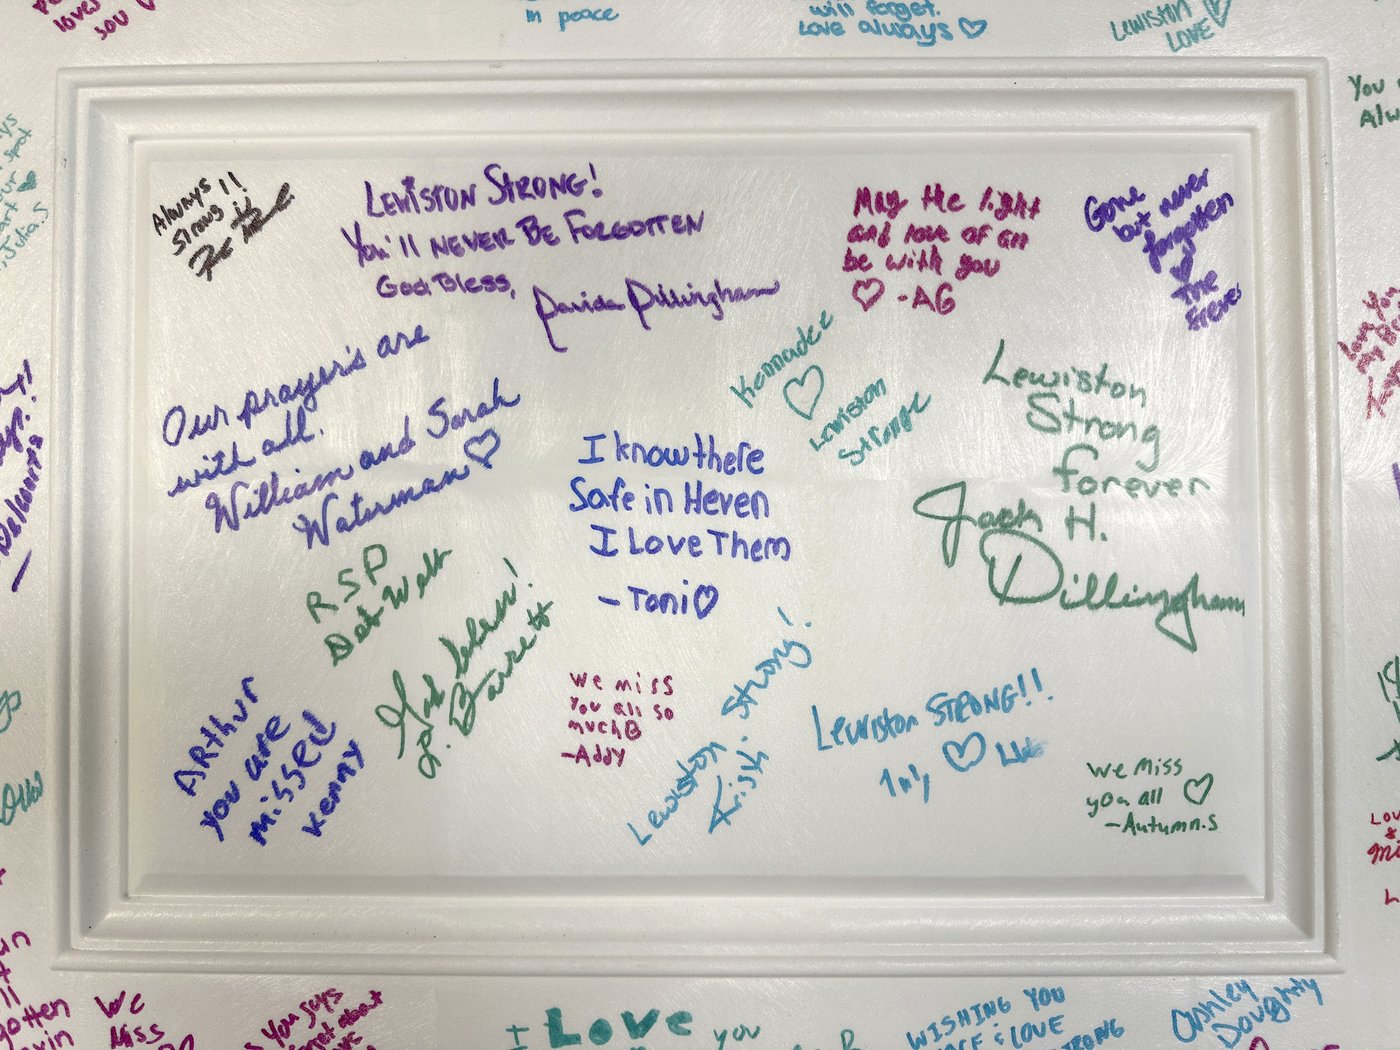 loves
you
in peace
will forget.
Love always
LEWISTON
LOVE
You
Always
Strong!!
LEWISTON STRONG!
You'll NEVER BE FORGOTTEN
God Bless,
Dillingham
May the light
and love of an
be with you
-AG
Gone
but never
forgotten
The
Our prayer's are
with all.
William and Sarah
Waterman
Kennadee
Lewiston
Stronge
Lewiston
Strong
forever
Jack H.
Dillingham
I know there
Safe in Heven
I Love Them
-Toni
RSP
God bless!
L. Barrett
ARthur
you are
missed
Kenny
we miss
you all so
much
-Addy
Lewiston Strong!
Lewiston STRONG!!
we miss
you all
-Autumn.S
We
Miss
you guys
I Love you
WISHING YOU
LOVE
STRONG
Ashley
Doughty